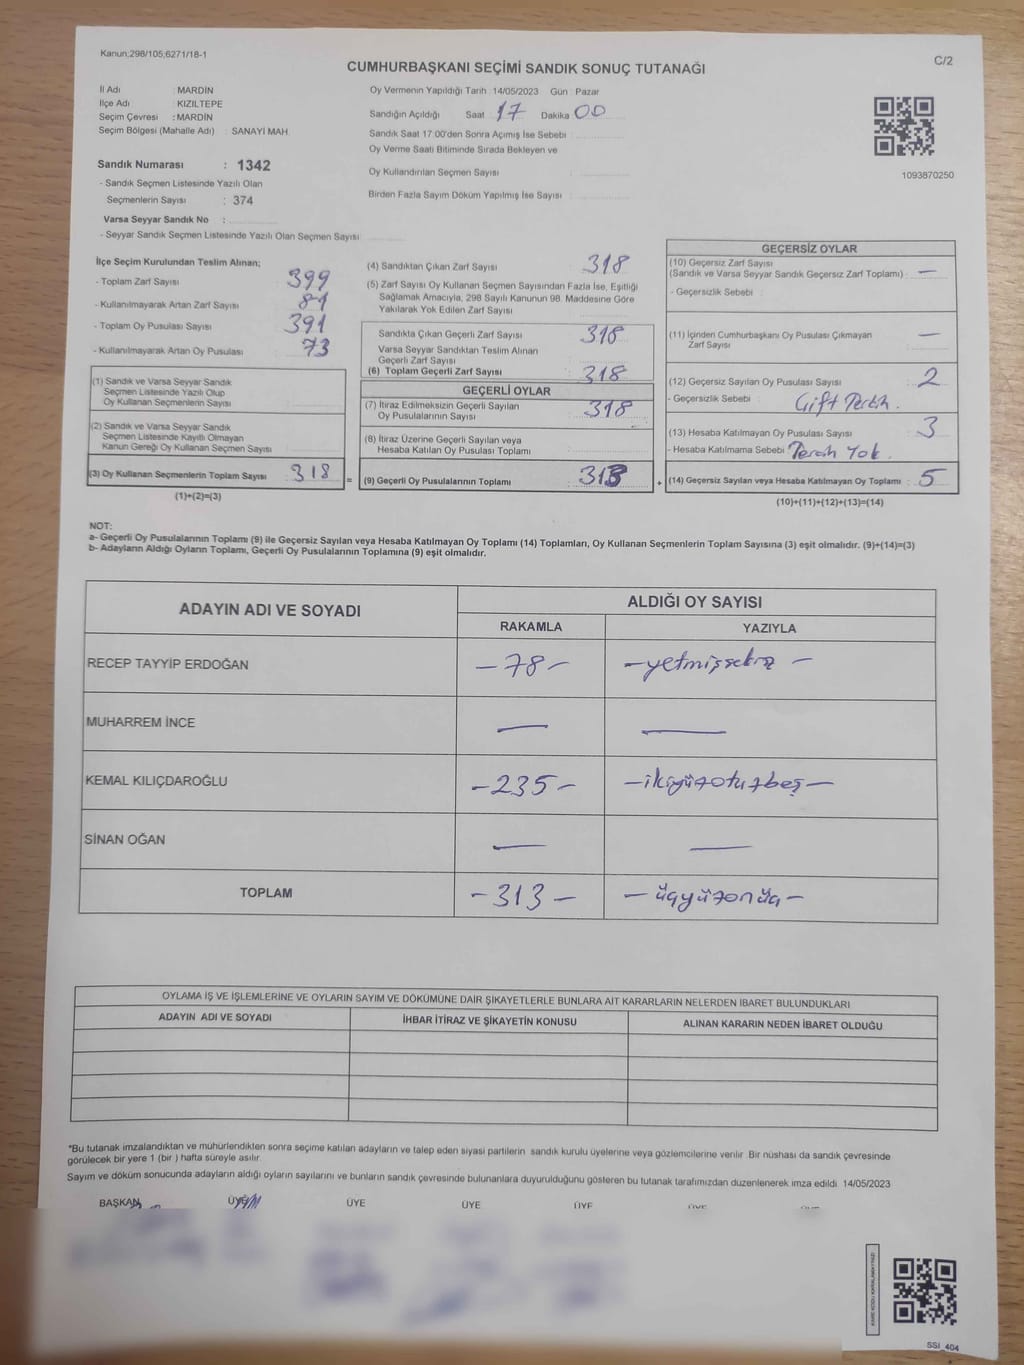 Kanun;298/105;6271/18-1
C/2
CUMHURBAŞKANI SEÇİMİ SANDIK SONUÇ TUTANAĞI
İl Adı : MARDİN
İlçe Adı : KIZILTEPE
Seçim Çevresi : MARDİN
Seçim Bölgesi (Mahalle Adı) : SANAYİ MAH.
Sandık Numarası : 1342
- Sandık Seçmen Listesinde Yazılı Olan
Seçmenlerin Sayısı : 374
Varsa Seyyar Sandık No :
- Seyyar Sandık Seçmen Listesinde Yazılı Olan Seçmen Sayısı:
Oy Vermenin Yapıldığı Tarih 14/05/2023 Gün : Pazar
Sandığın Açıldığı Saat 17 Dakika 00
Sandık Saat 17:00'den Sonra Açımış İse Sebebi :
Oy Verme Saati Bitiminde Sırada Bekleyen ve
Oy Kullandırılan Seçmen Sayısı :
Birden Fazla Sayım Döküm Yapılmış İse Sayısı :
1093870250
İlçe Seçim Kurulundan Teslim Alınan;
- Toplam Zarf Sayısı : 399
- Kullanılmayarak Artan Zarf Sayısı : 81
- Toplam Oy Pusulası Sayısı : 391
- Kullanılmayarak Artan Oy Pusulası : 73
(1) Sandık ve Varsa Seyyar Sandık
Seçmen Listesinde Yazılı Olup
Oy Kullanan Seçmenlerin Sayısı :
(2) Sandık ve Varsa Seyyar Sandık
Seçmen Listesinde Kayıtlı Olmayan
Kanun Gereği Oy Kullanan Seçmen Sayısı :
(3) Oy Kullanan Seçmenlerin Toplam Sayısı : 318
(1)+(2)=(3)
(4) Sandıktan Çıkan Zarf Sayısı : 318
(5) Zarf Sayısı Oy Kullanan Seçmen Sayısından Fazla İse, Eşitliği
Sağlamak Amacıyla, 298 Sayılı Kanunun 98. Maddesine Göre
Yakılarak Yok Edilen Zarf Sayısı :
Sandıkta Çıkan Geçerli Zarf Sayısı : 318
Varsa Seyyar Sandıktan Teslim Alınan
Geçerli Zarf Sayısı :
(6) Toplam Geçerli Zarf Sayısı : 318
GEÇERLİ OYLAR
(7) İtiraz Edilmeksizin Geçerli Sayılan
Oy Pusulalarının Sayısı : 318
(8) İtiraz Üzerine Geçerli Sayılan veya
Hesaba Katılan Oy Pusulası Toplamı :
= (9) Geçerli Oy Pusulalarının Toplamı : 313 +
GEÇERSİZ OYLAR
(10) Geçersiz Zarf Sayısı
(Sandık ve Varsa Seyyar Sandık Geçersiz Zarf Toplamı) : —
- Geçersizlik Sebebi :
(11) İçinden Cumhurbaşkanı Oy Pusulası Çıkmayan
Zarf Sayısı : —
(12) Geçersiz Sayılan Oy Pusulası Sayısı : 2
- Geçersizlik Sebebi : Çift Tercih.
(13) Hesaba Katılmayan Oy Pusulası Sayısı : 3
- Hesaba Katılmama Sebebi : Tercih Yok.
(14) Geçersiz Sayılan veya Hesaba Katılmayan Oy Toplamı : 5
(10)+(11)+(12)+(13)=(14)
NOT:
a- Geçerli Oy Pusulalarının Toplamı (9) ile Geçersiz Sayılan veya Hesaba Katılmayan Oy Toplamı (14) Toplamları, Oy Kullanan Seçmenlerin Toplam Sayısına (3) eşit olmalıdır. (9)+(14)=(3)
b- Adayların Aldığı Oyların Toplamı, Geçerli Oy Pusulalarının Toplamına (9) eşit olmalıdır.
ADAYIN ADI VE SOYADI
ALDIĞI OY SAYISI
RAKAMLA YAZIYLA
RECEP TAYYİP ERDOĞAN -78- -yetmişsekiz-
MUHARREM İNCE — —
KEMAL KILIÇDAROĞLU -235- -ikiyüzotuzbeş-
SİNAN OĞAN — —
TOPLAM -313- -üçyüzonüç-
OYLAMA İŞ VE İŞLEMLERİNE VE OYLARIN SAYIM VE DÖKÜMÜNE DAİR ŞİKAYETLERLE BUNLARA AİT KARARLARIN NELERDEN İBARET BULUNDUKLARI
ADAYIN ADI VE SOYADI İHBAR İTİRAZ VE ŞİKAYETİN KONUSU ALINAN KARARIN NEDEN İBARET OLDUĞU
*Bu tutanak imzalandıktan ve mühürlendikten sonra seçime katılan adayların ve talep eden siyasi partilerin sandık kurulu üyelerine veya gözlemcilerine verilir. Bir nüshası da sandık çevresinde
görülecek bir yere 1 (bir ) hafta süreyle asılır.
Sayım ve döküm sonucunda adayların aldığı oyların sayılarını ve bunların sandık çevresinde bulunanlara duyurulduğunu gösteren bu tutanak tarafımızdan düzenlenerek imza edildi 14/05/2023
BAŞKAN ÜYE ÜYE ÜYE ÜYE
SSI_404